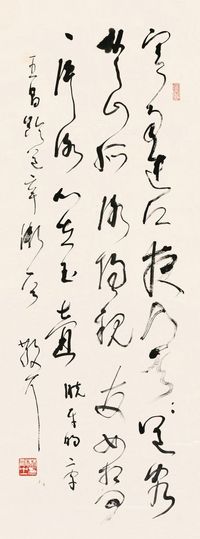 寒雨連江夜入吳送客
楚山孤洛陽親友如相問
一片冰心在玉壺 脱平明二字
王昌齡送辛漸 散耳